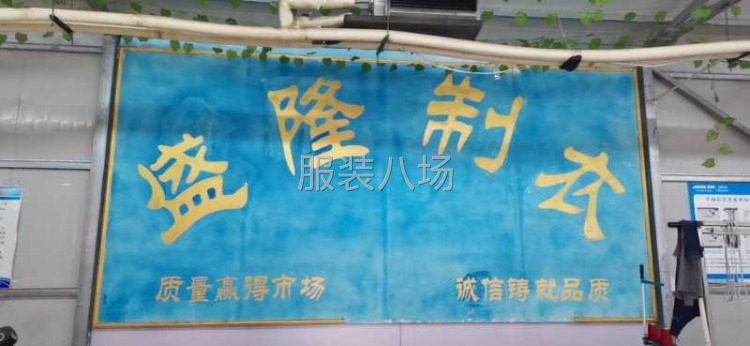 盛隆制衣
服装八场
质量赢得市场
诚信铸就品质